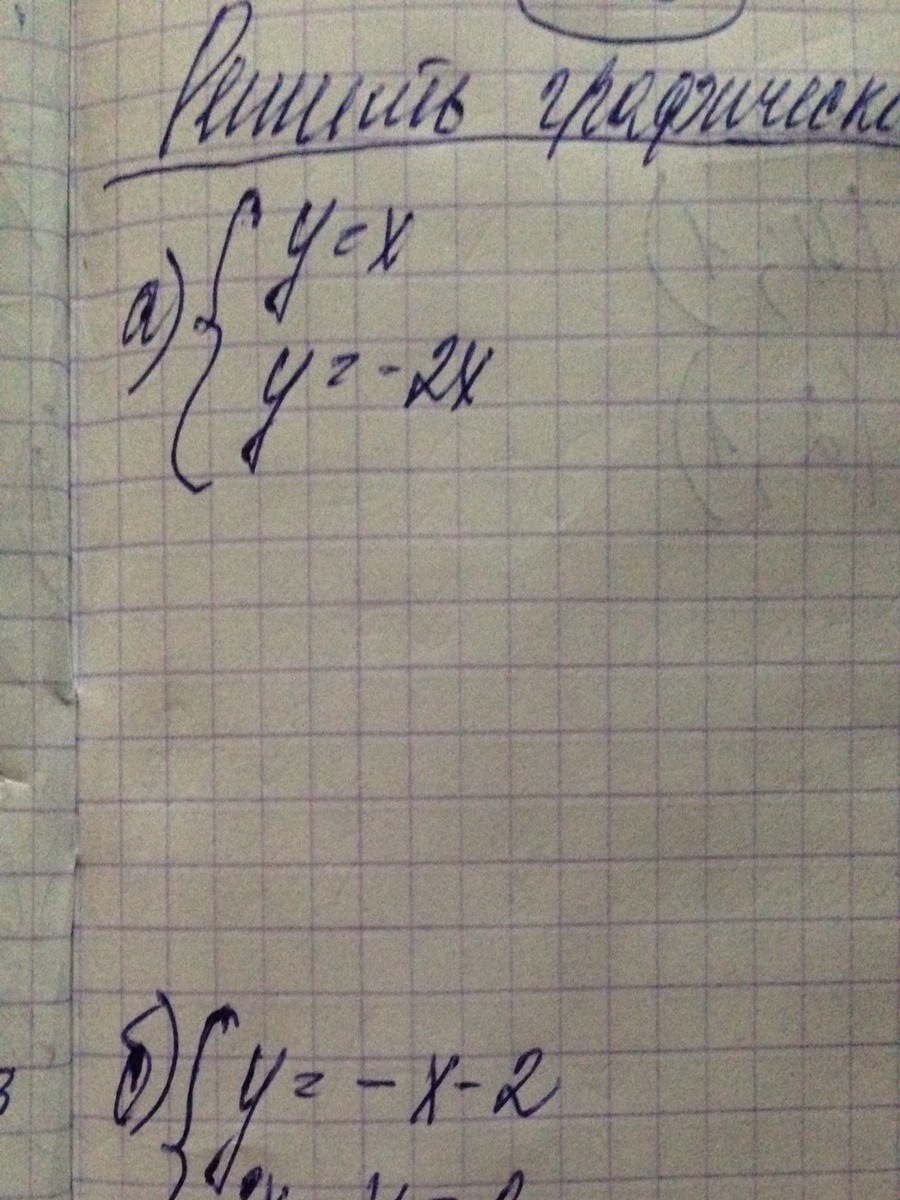 Решить графическ
а) { y = x
y = -2x
б) { y = -x-2